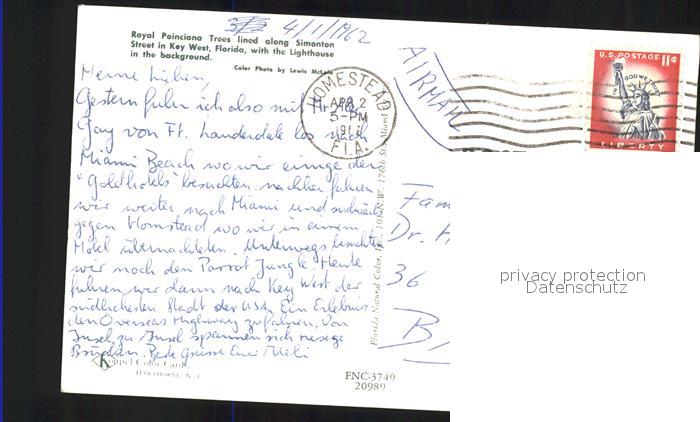 4/1/1962
Royal Poinciana Trees lined along Simonton
Street in Key West, Florida, with the Lighthouse
in the background.
Color Photo by Lewis
Meine Lieben,
Gestern fuhr ich also mit
Gay von Ft. Lauderdale los nach
Miami Beach wo wir einige der
"Goldhotels" besuchten. nachher fuhren
wir weiter nach Miami und südwärts
gegen Homstead wo wir in einem
Motel übernachteten. Unterwegs besuchten
wir noch den Parrot Jungle. Heute
fuhren wir dann nach Key West der
südlichsten Stadt der USA. Ein Erlebnis
den Overseas Highway zu fahren. Von
Insel zu Insel spannen sich riesige
Brücken. Beste Grüsse Euer Ueli
Koppel Color Cards
Hawthorne, N. J.
FNC-3749
20989
Florida Natural Color, Inc. N.W. 176th St., Miami
HOMESTEAD
APR 2
5-PM
FLA.
AIRMAIL
U.S. POSTAGE 11¢
IN GOD WE TRUST
LIBERTY
Fam
Dr. H
36
B
privacy protection
Datenschutz